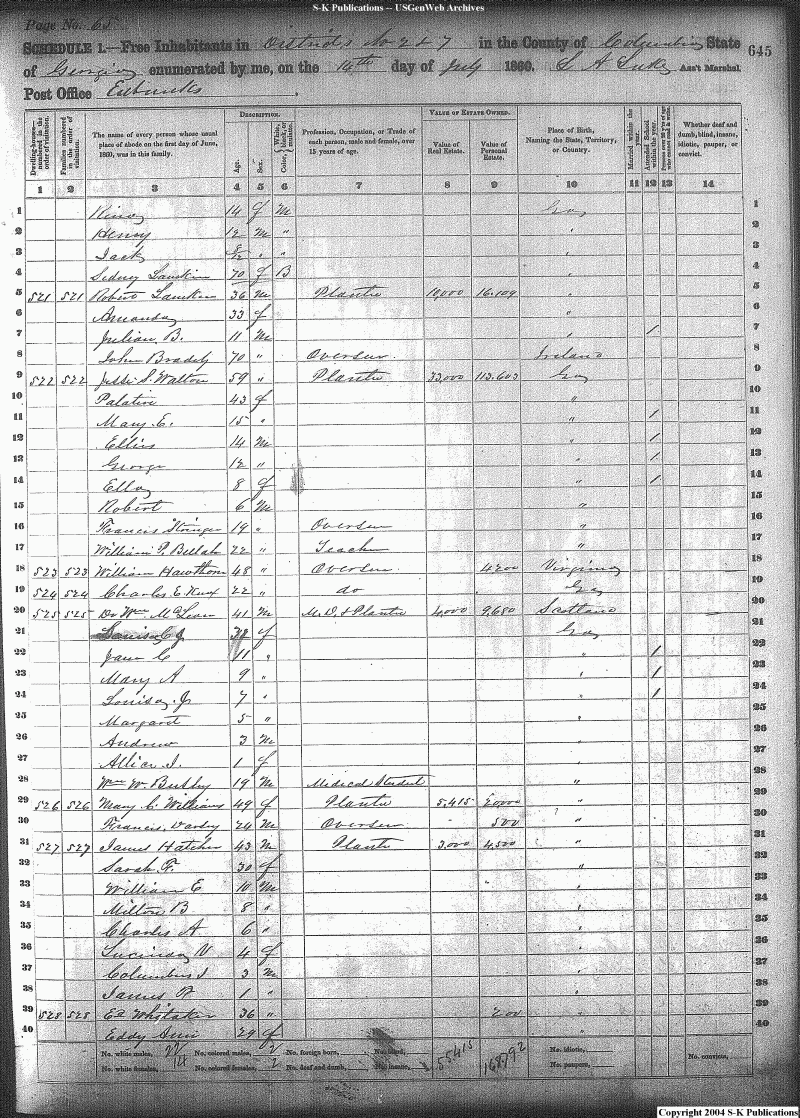 S-K Publications -- USGenWeb Archives
Page No. 65
SCHEDULE 1.—Free Inhabitants in Districts No 2 & 7 in the County of Columbia State
of Georgia enumerated by me, on the 14th day of July 1860. S A Luke Ass't Marshal.
645
Post Office Eubanks
Dwelling-houses—numbered in the order of visitation.
Families numbered in the order of visitation.
The name of every person whose usual place of abode on the first day of June, 1860, was in this family.
DESCRIPTION.
Age.
Sex.
Color, White, black, or mulatto.
Profession, Occupation, or Trade of each person, male and female, over 15 years of age.
VALUE OF ESTATE OWNED.
Value of Real Estate.
Value of Personal Estate.
Place of Birth, Naming the State, Territory, or Country.
Married within the year.
Attended School within the year.
Persons over 20 y'rs of age who cannot read & write.
Whether deaf and dumb, blind, insane, idiotic, pauper, or convict.
1 2 3 4 5 6 7 8 9 10 11 12 13 14
1 14 f M Ga 1
2 Henry 12 m " " 2
3 Jack " " " 3
4 Sidney 70 f B " 4
5 521 521 Robert 36 m Planter 10,000 16.109 " 5
6 Amanda 33 f " 6
7 Julian B. 11 m " 1 7
8 John Bradely 70 " Overseer Ireland 8
9 522 522 Jesse S. Walton 59 " Planter 33,000 113.603 Ga 9
10 Palatia 43 f " 10
11 Mary E. 15 " " 1 11
12 Ellis 14 m " 1 12
13 George 12 " " 1 13
14 Ella 8 f " 1 14
15 Robert 6 m " 15
16 Francis Stringer 19 " Overseer " 16
17 William P. 22 " Teacher " 17
18 523 523 William Hawthorn 48 " Overseer 4200 Virginia 18
19 524 524 Charles E. 22 " do Ga 19
20 525 525 Dr Wm McLean 41 M M.D. & Planter 4,000 9,680 Scotland 20
21 f Ga 21
22 Jane C 11 " " 1 22
23 Mary A 9 " " 1 23
24 Louisa J. 7 " " 1 24
25 Margaret 5 " " 25
26 Andrew 3 m " 26
27 Allice I. 1 f 27
28 Wm W. 19 m Medical Student " 28
29 526 526 Mary C. Williams 49 f Planter 5,415 20000 " 29
30 Francis 24 m Overseer 500 " 30
31 527 527 James Hatcher 43 m Planter 3,000 4,500 " 31
32 Sarah F. 30 f " 32
33 William E 10 m " 33
34 Milton B 8 " " 34
35 Charles A 6 " " 35
36 Lucinda V 4 f " 36
37 Columbus J 3 m " 37
38 James 1 " " 38
39 528 528 Ed Whitaker 36 " 200 " 39
40 Eddy Ann 29 f " 40
No. white males, 22 No. colored males, 2 No. foreign born, No. blind, 55415 No. idiotic, No. convicts,
No. white females, 14 No. colored females, 2 No. deaf and dumb, No. insane, No. paupers,
Copyright 2004 S-K Publications